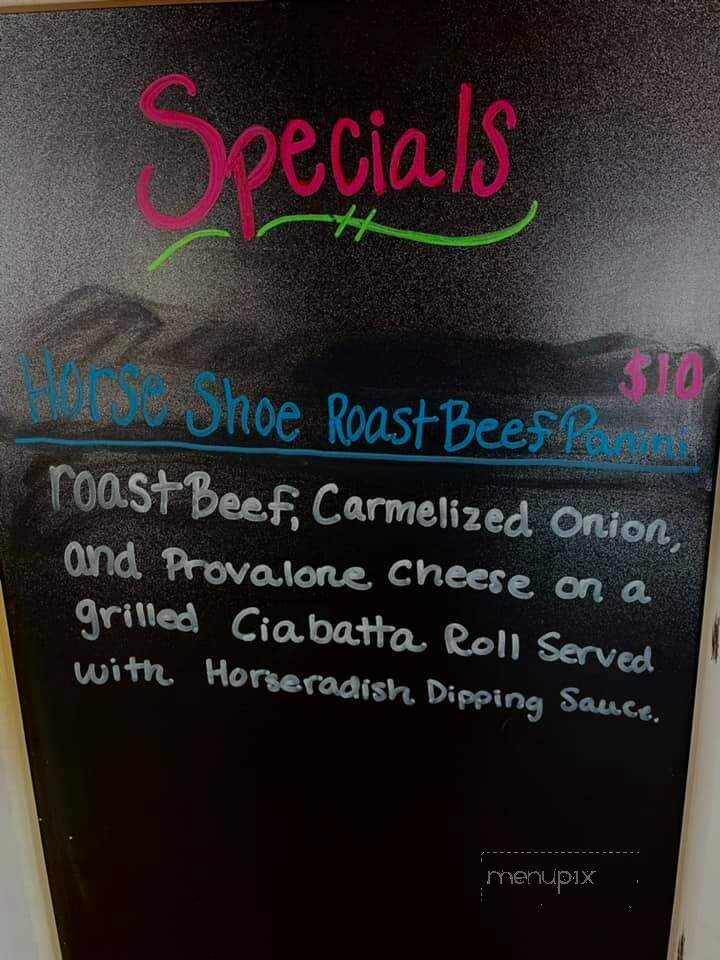 Specials
$10
Horse Shoe Roast Beef Panini
roast Beef, Carmelized Onion,
and Provalone Cheese on a
grilled Ciabatta Roll Served
with Horseradish Dipping Sauce.
menupix